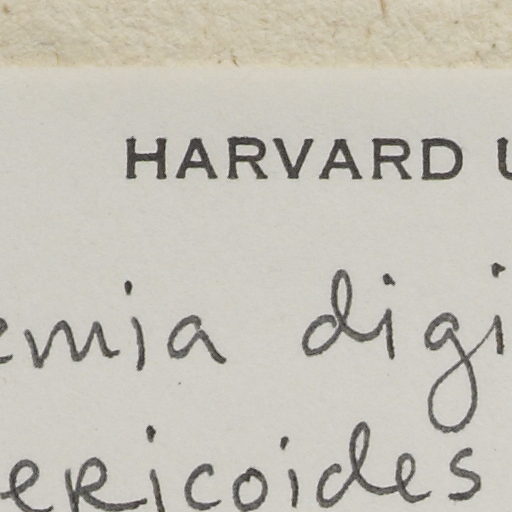 HARVARD U
emia digi
ericoides